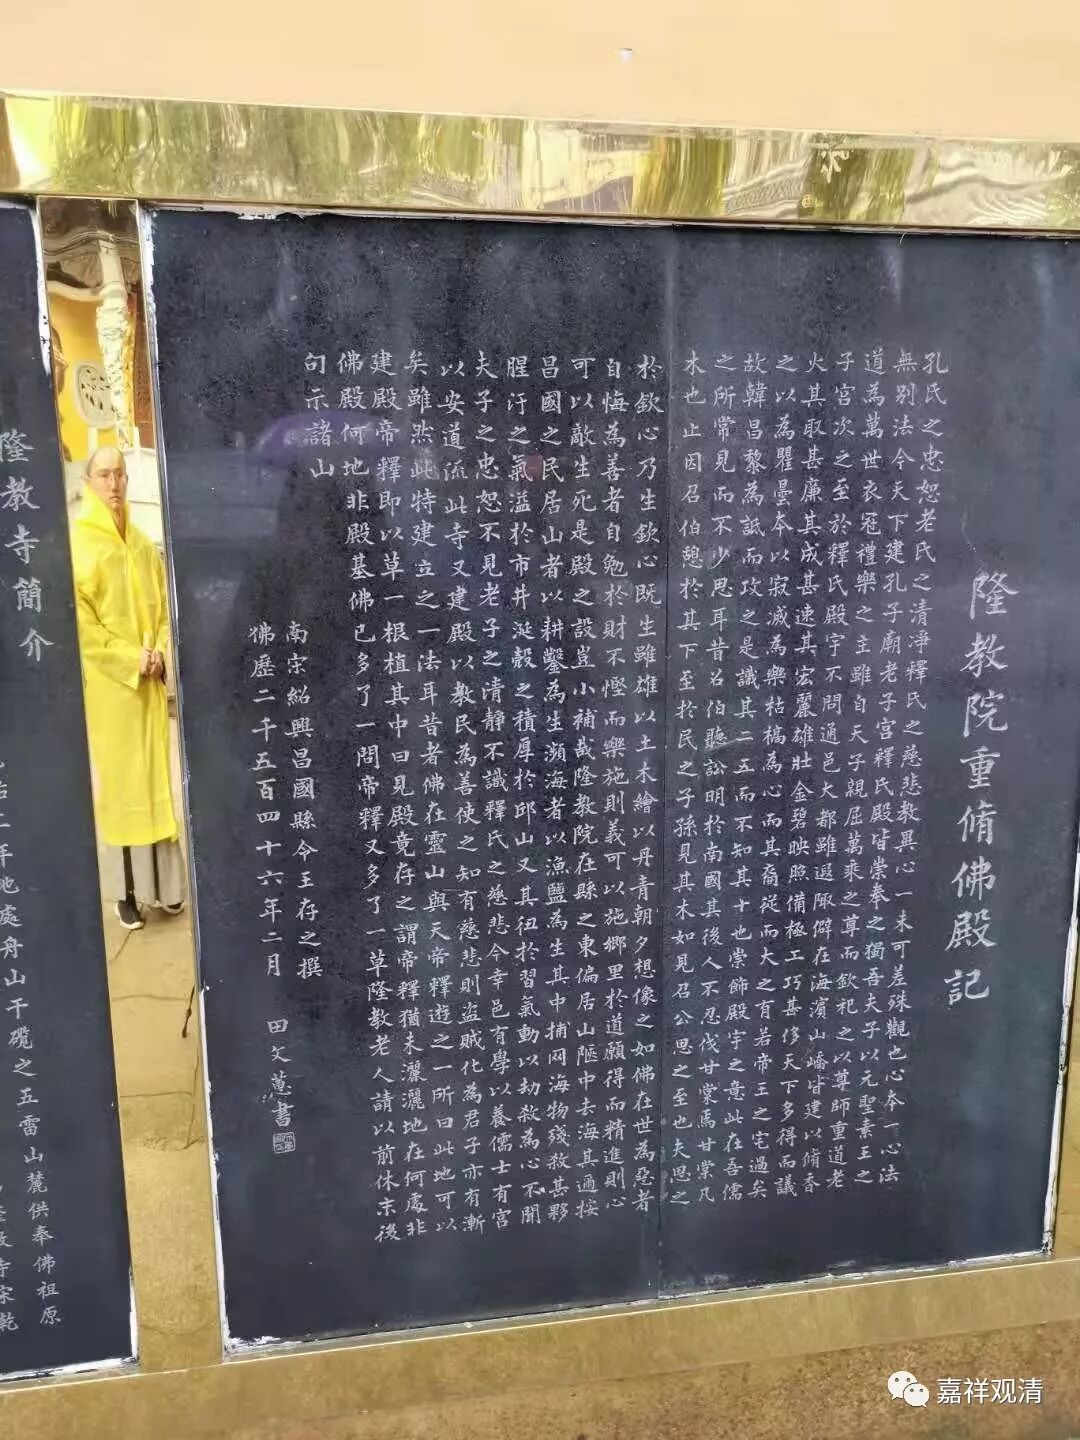 隆教院重脩佛殿記
孔氏之忠恕老氏之清淨釋氏之慈悲教異心一未可差殊觀也心本一心法
無別法今天下建孔子廟老子宮釋氏殿皆崇奉之獨吾夫子以元聖素王之
道為萬世衣冠禮樂之主雖自天子親屈萬乘之尊而欽祀之以尊師重道老
子宮次之至於釋氏殿宇不問通邑大都雖遐陬僻在海濱山嶠皆建以脩香
火其取甚廉其成甚速其宏麗雄壯金碧映照備極工巧甚侈天下多得而議
之以為瞿曇本以寂滅為樂枯槁為心而其裔從而大之有若帝王之宅過矣
故韓昌黎為詆而攻之是識其二五而不知其十也崇飾殿宇之意此在吾儒
之所常見而不少思耳昔召伯聽訟明於南國其後人不忍伐甘棠焉甘棠凡
木也止因召伯憩於其下至於民之子孫見其木如見召公思之至也夫思之
於欽心乃生欽心既生雖雄以土木繪以丹青朝夕想像之如佛在世為惡者
自悔為善者自勉於財不慳而樂施則義可以施鄉里於道願得而精進則心
可以敵生死是殿之設豈小補哉隆教院在縣之東偏居山陿中去海其邇按
昌國之民居山者以耕鑿為生瀕海者以漁鹽為生其中捕网海物殘殺甚夥
腥汙之氣溢於市井涎殼之積厚於邱山又其狃於習氣動以劫殺為心不聞
夫子之忠恕不見老子之清靜不識釋氏之慈悲今幸邑有學以養儒士有宮
以安道流此寺又建殿以教民為善使之知有慈悲則盜賊化為君子亦有漸
矣雖然此特建立之一法耳昔者佛在靈山與天帝釋遊之一所曰此地可以
建殿帝釋即以草一根植其中曰見殿竟存之謂帝釋猶未灑灑地在何處非
佛殿何地非殿基佛已多了一問帝釋又多了一草隆教老人請以前休末後
句示諸山
南宗紹興昌國縣令王存之撰
佛歷二千五百四十六年二月 田文蕙書
隆教寺簡介
年地處舟山干𥐻之五雷山麓供奉佛祖原
寺宋乾
嘉祥观清